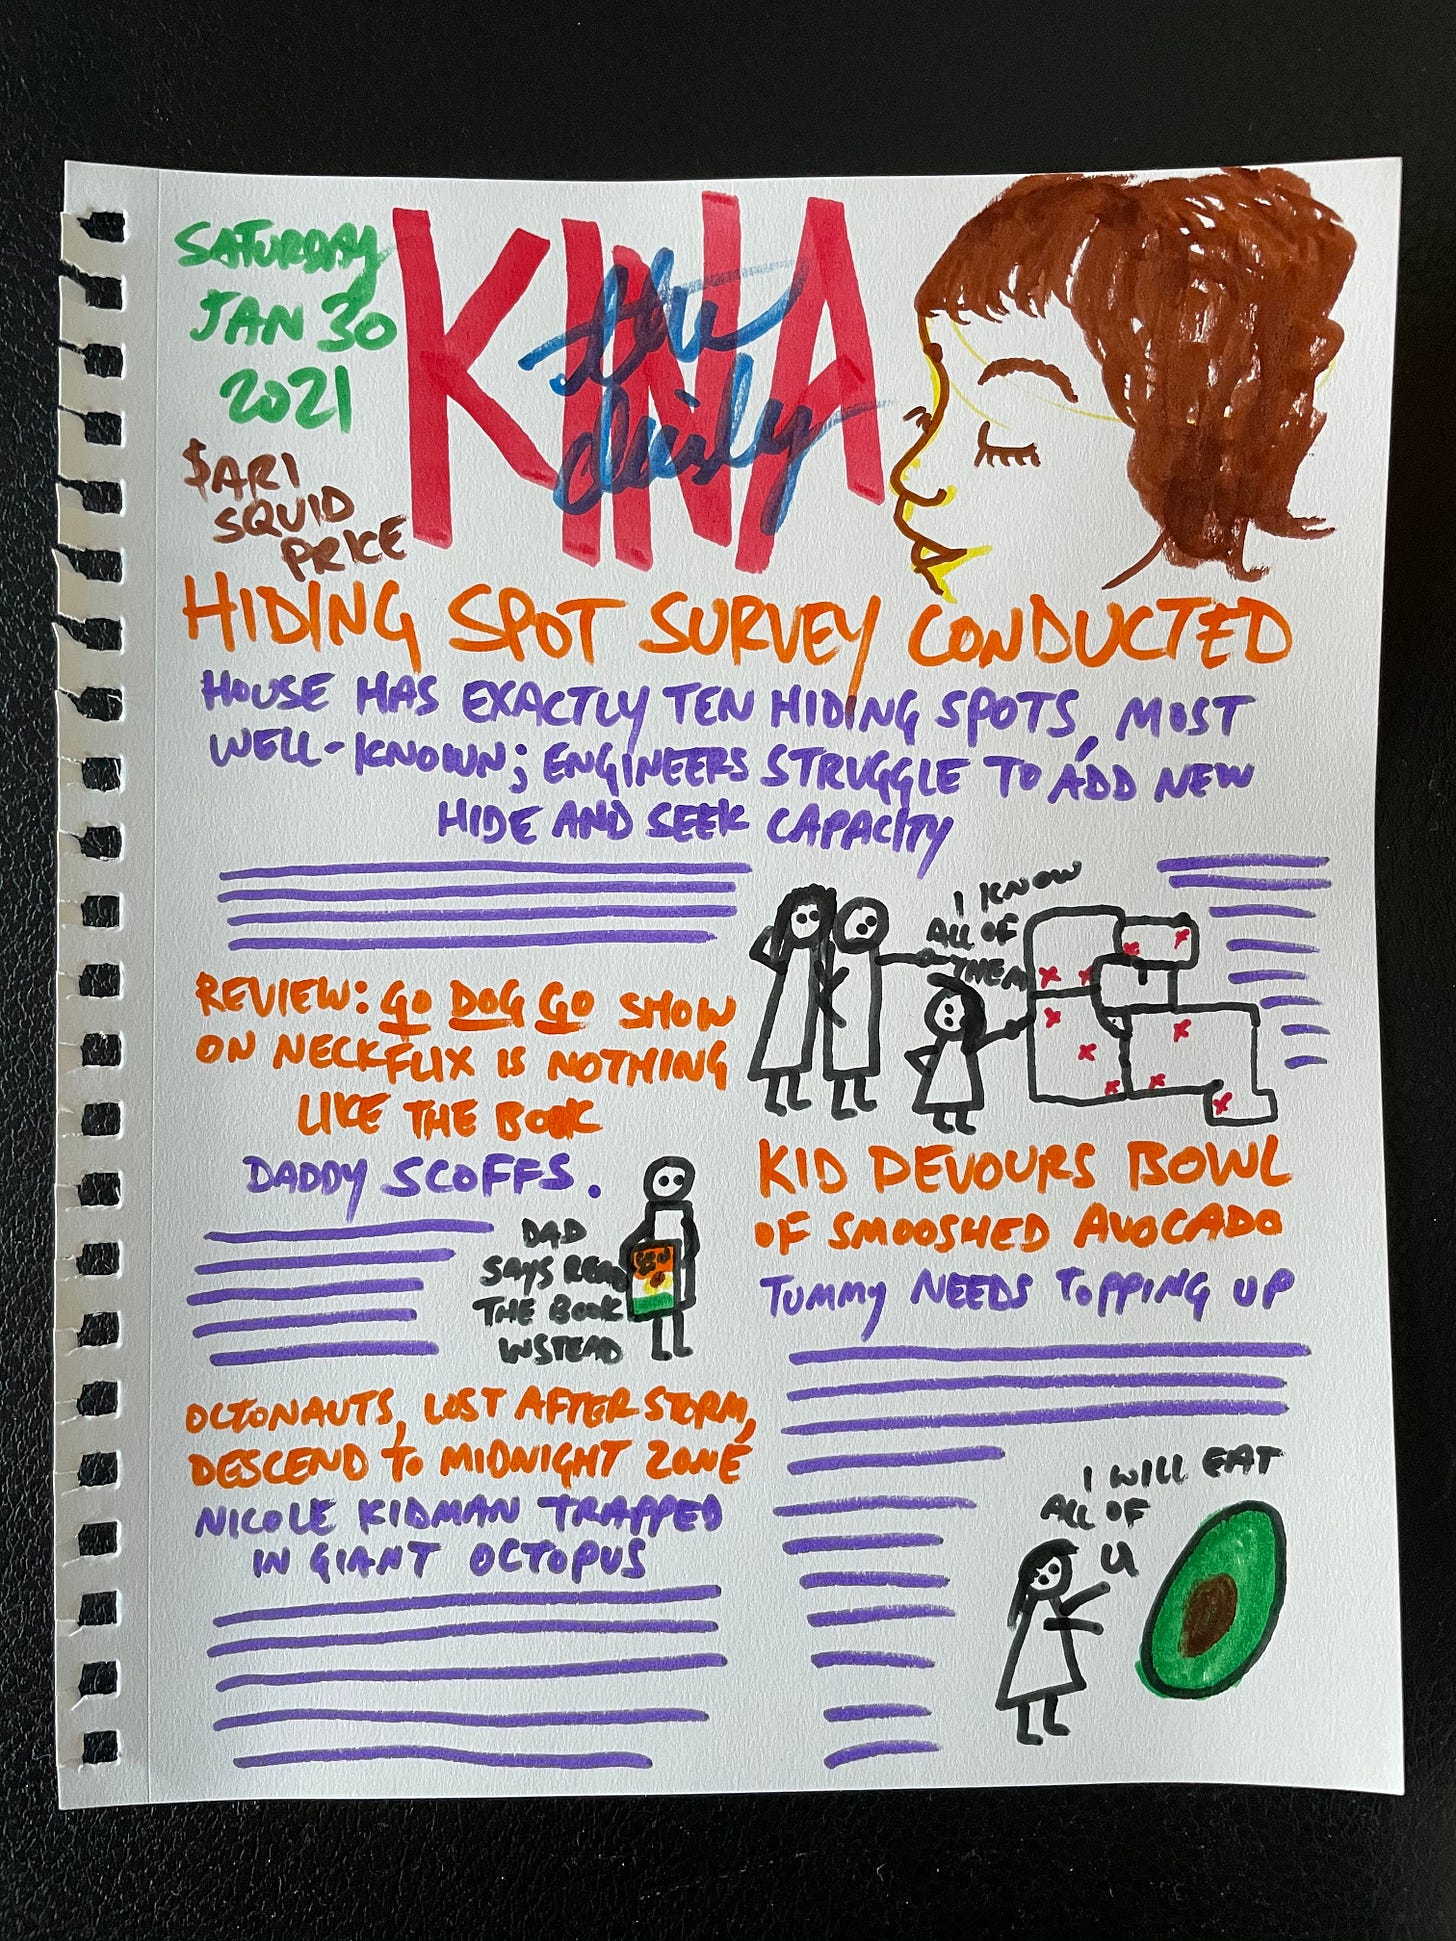 SATURDAY
JAN 30
2021
$ARI
SQUID
PRICE
KINA
the
daily
HIDING SPOT SURVEY CONDUCTED
HOUSE HAS EXACTLY TEN HIDING SPOTS, MOST
WELL-KNOWN; ENGINEERS STRUGGLE TO ADD NEW
HIDE AND SEEK CAPACITY
I KNOW
ALL OF
THEM
REVIEW: GO DOG GO SHOW
ON NECKFLIX IS NOTHING
LIKE THE BOOK
DADDY SCOFFS.
DAD
SAYS READ
THE BOOK
INSTEAD
OCTONAUTS, LOST AFTER STORM,
DESCEND TO MIDNIGHT ZONE
NICOLE KIDMAN TRAPPED
IN GIANT OCTOPUS
KID DEVOURS BOWL
OF SMOOSHED AVOCADO
TUMMY NEEDS TOPPING UP
I WILL EAT
ALL OF
U